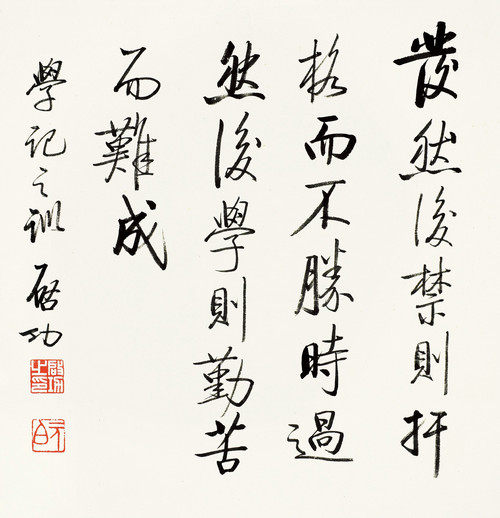 發然後禁則扞
格而不勝時過
然後學則勤苦
而難成
學記之訓 启功
啟功之印
元白